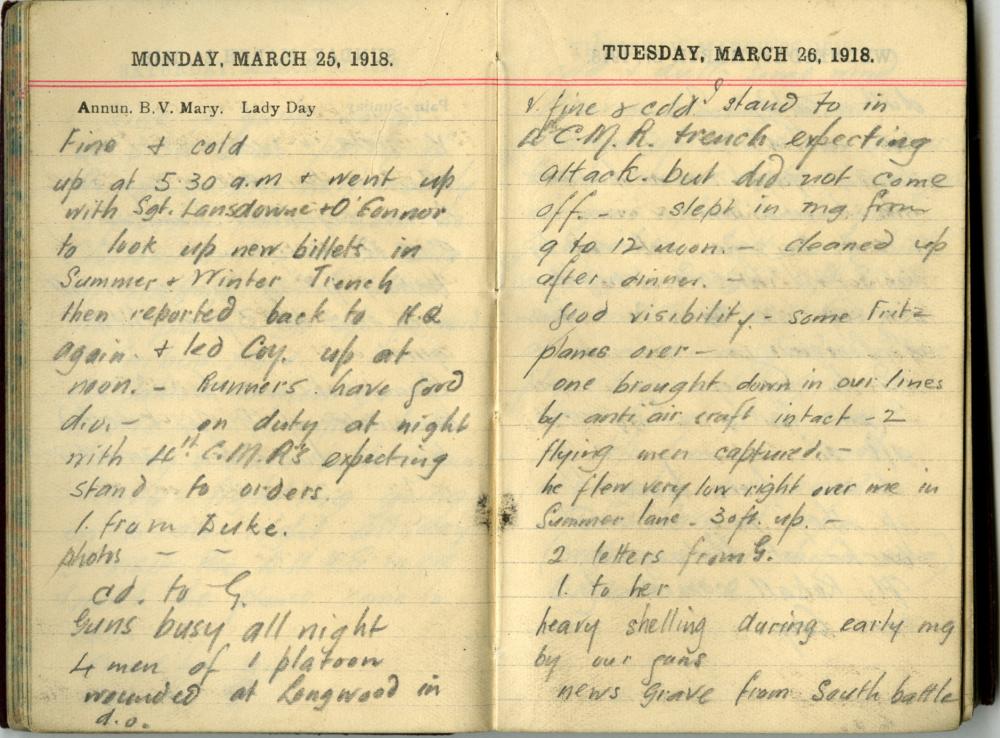 MONDAY, MARCH 25, 1918.
Annun. B.V. Mary. Lady Day
Fine & cold
up at 5.30 a.m & went up
with Sgt. Lansdowne & O'Connor
to look up new billets in
Summer & Winter Trench
then reported back to H.Q
again. & led Coy. up at
noon. - Runners have good
on duty at night
with 4th C.M.R's expecting
stand to orders.
1. from Duke.
photos - -
cd. to G.
Guns busy all night
4 men of 1 platoon
wounded at Longwood in
d.o.
TUESDAY, MARCH 26, 1918.
v. fine & cold stand to in
4 C.M.R. trench expecting
attack. but did not come
off - slept in mg from
9 to 12 noon. - cleaned up
after dinner. -
good visibility. - some Fritz
planes over -
one brought down in our lines
by anti air craft intact - 2
flying men captured. -
he flew very low right over me in
Summer lane. 30 ft. up. -
2 letters from G.
1. to her
heavy shelling during early mg
by our guns
news grave from South battle